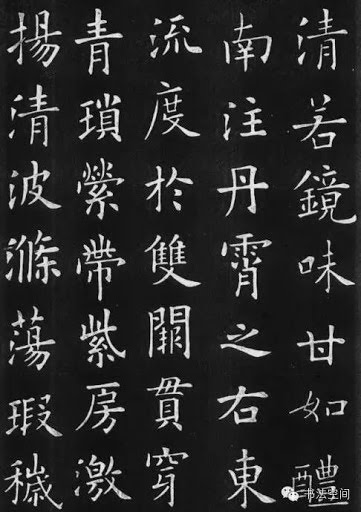 清若鏡味甘如醴
南注丹霄之右東
流度於雙闕貫穿
青瑣縈帶紫房激
揚清波滌蕩瑕穢
书法空间